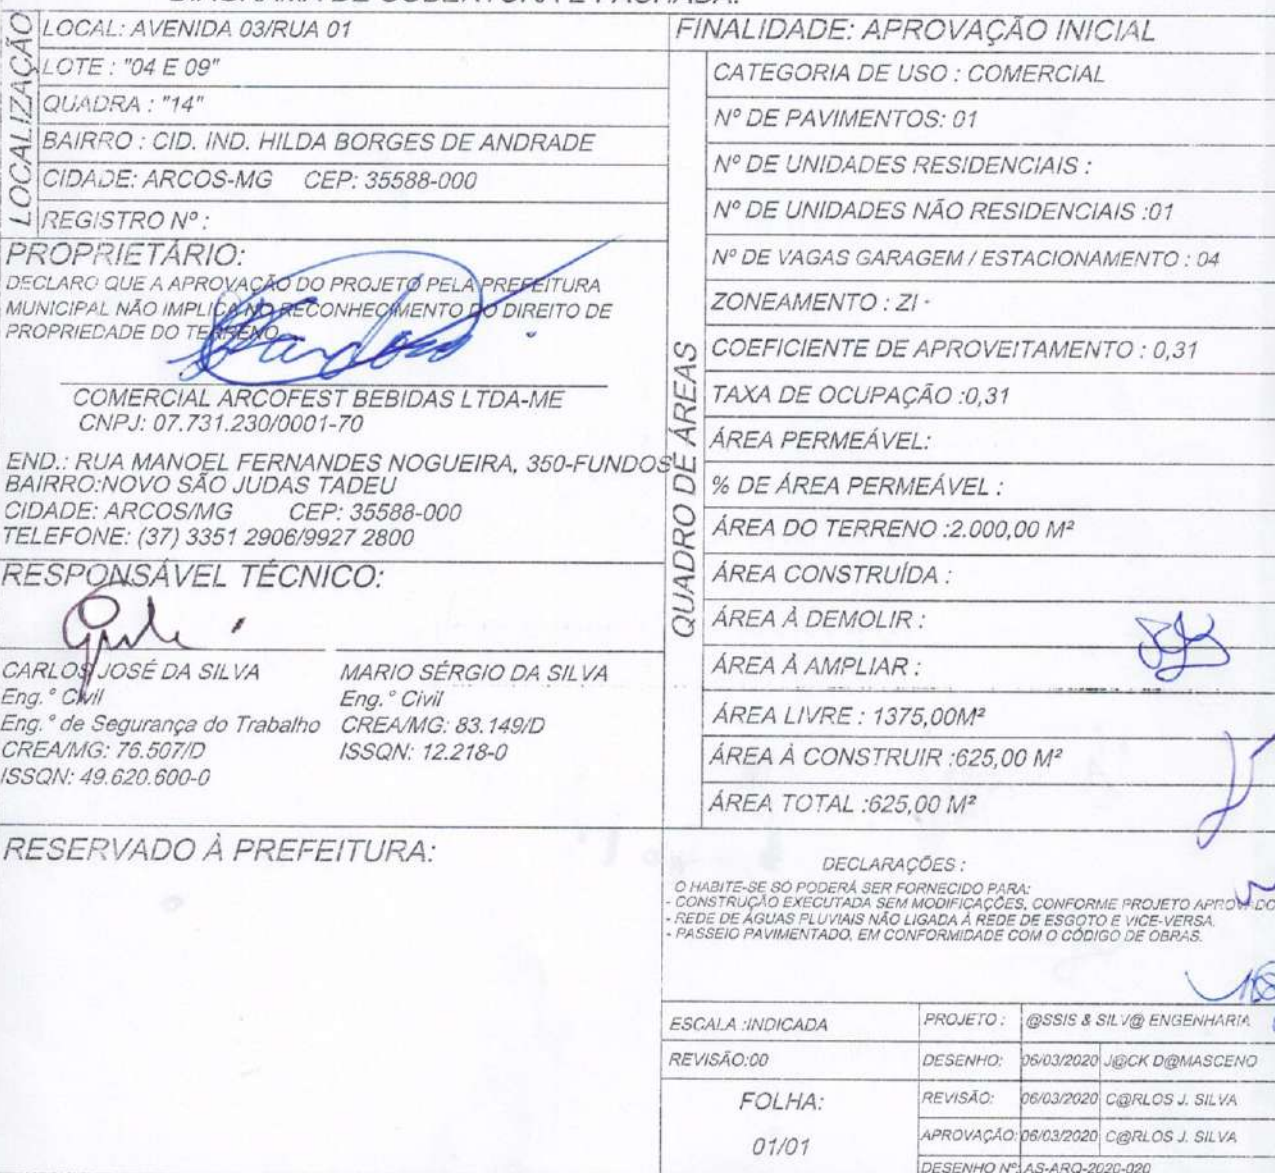 LOCALIZAÇÃO
LOCAL: AVENIDA 03/RUA 01
LOTE : "04 E 09"
QUADRA : "14"
BAIRRO : CID. IND. HILDA BORGES DE ANDRADE
CIDADE: ARCOS-MG CEP: 35588-000
REGISTRO Nº :
PROPRIETÁRIO:
DECLARO QUE A APROVAÇÃO DO PROJETO PELA PREFEITURA
MUNICIPAL NÃO IMPLICA NO RECONHECIMENTO DO DIREITO DE
PROPRIEDADE DO TERRENO
COMERCIAL ARCOFEST BEBIDAS LTDA-ME
CNPJ: 07.731.230/0001-70
END.: RUA MANOEL FERNANDES NOGUEIRA, 350-FUNDOS
BAIRRO:NOVO SÃO JUDAS TADEU
CIDADE: ARCOS/MG CEP: 35588-000
TELEFONE: (37) 3351 2906/9927 2800
RESPONSÁVEL TÉCNICO:
CARLOS JOSÉ DA SILVA
Eng.º Civil
Eng.º de Segurança do Trabalho
CREA/MG: 76.507/D
ISSQN: 49.620.600-0
MARIO SÉRGIO DA SILVA
Eng.º Civil
CREA/MG: 83.149/D
ISSQN: 12.218-0
RESERVADO À PREFEITURA:
FINALIDADE: APROVAÇÃO INICIAL
QUADRO DE ÁREAS
CATEGORIA DE USO : COMERCIAL
Nº DE PAVIMENTOS: 01
Nº DE UNIDADES RESIDENCIAIS :
Nº DE UNIDADES NÃO RESIDENCIAIS :01
Nº DE VAGAS GARAGEM / ESTACIONAMENTO : 04
ZONEAMENTO : ZI -
COEFICIENTE DE APROVEITAMENTO : 0,31
TAXA DE OCUPAÇÃO :0,31
ÁREA PERMEÁVEL:
% DE ÁREA PERMEÁVEL :
ÁREA DO TERRENO :2.000,00 M²
ÁREA CONSTRUÍDA :
ÁREA À DEMOLIR :
ÁREA À AMPLIAR :
ÁREA LIVRE : 1375,00M²
ÁREA À CONSTRUIR :625,00 M²
ÁREA TOTAL :625,00 M²
DECLARAÇÕES :
O HABITE-SE SÓ PODERÁ SER FORNECIDO PARA:
- CONSTRUÇÃO EXECUTADA SEM MODIFICAÇÕES, CONFORME PROJETO APROVADO
- REDE DE ÁGUAS PLUVIAIS NÃO LIGADA À REDE DE ESGOTO E VICE-VERSA.
- PASSEIO PAVIMENTADO, EM CONFORMIDADE COM O CÓDIGO DE OBRAS.
ESCALA :INDICADA
PROJETO : @SSIS & SILV@ ENGENHARIA
REVISÃO:00
DESENHO: 06/03/2020 J@CK D@MASCENO
FOLHA:
01/01
REVISÃO: 06/03/2020 C@RLOS J. SILVA
APROVAÇÃO: 06/03/2020 C@RLOS J. SILVA
DESENHO Nº: AS-ARQ-2020-020